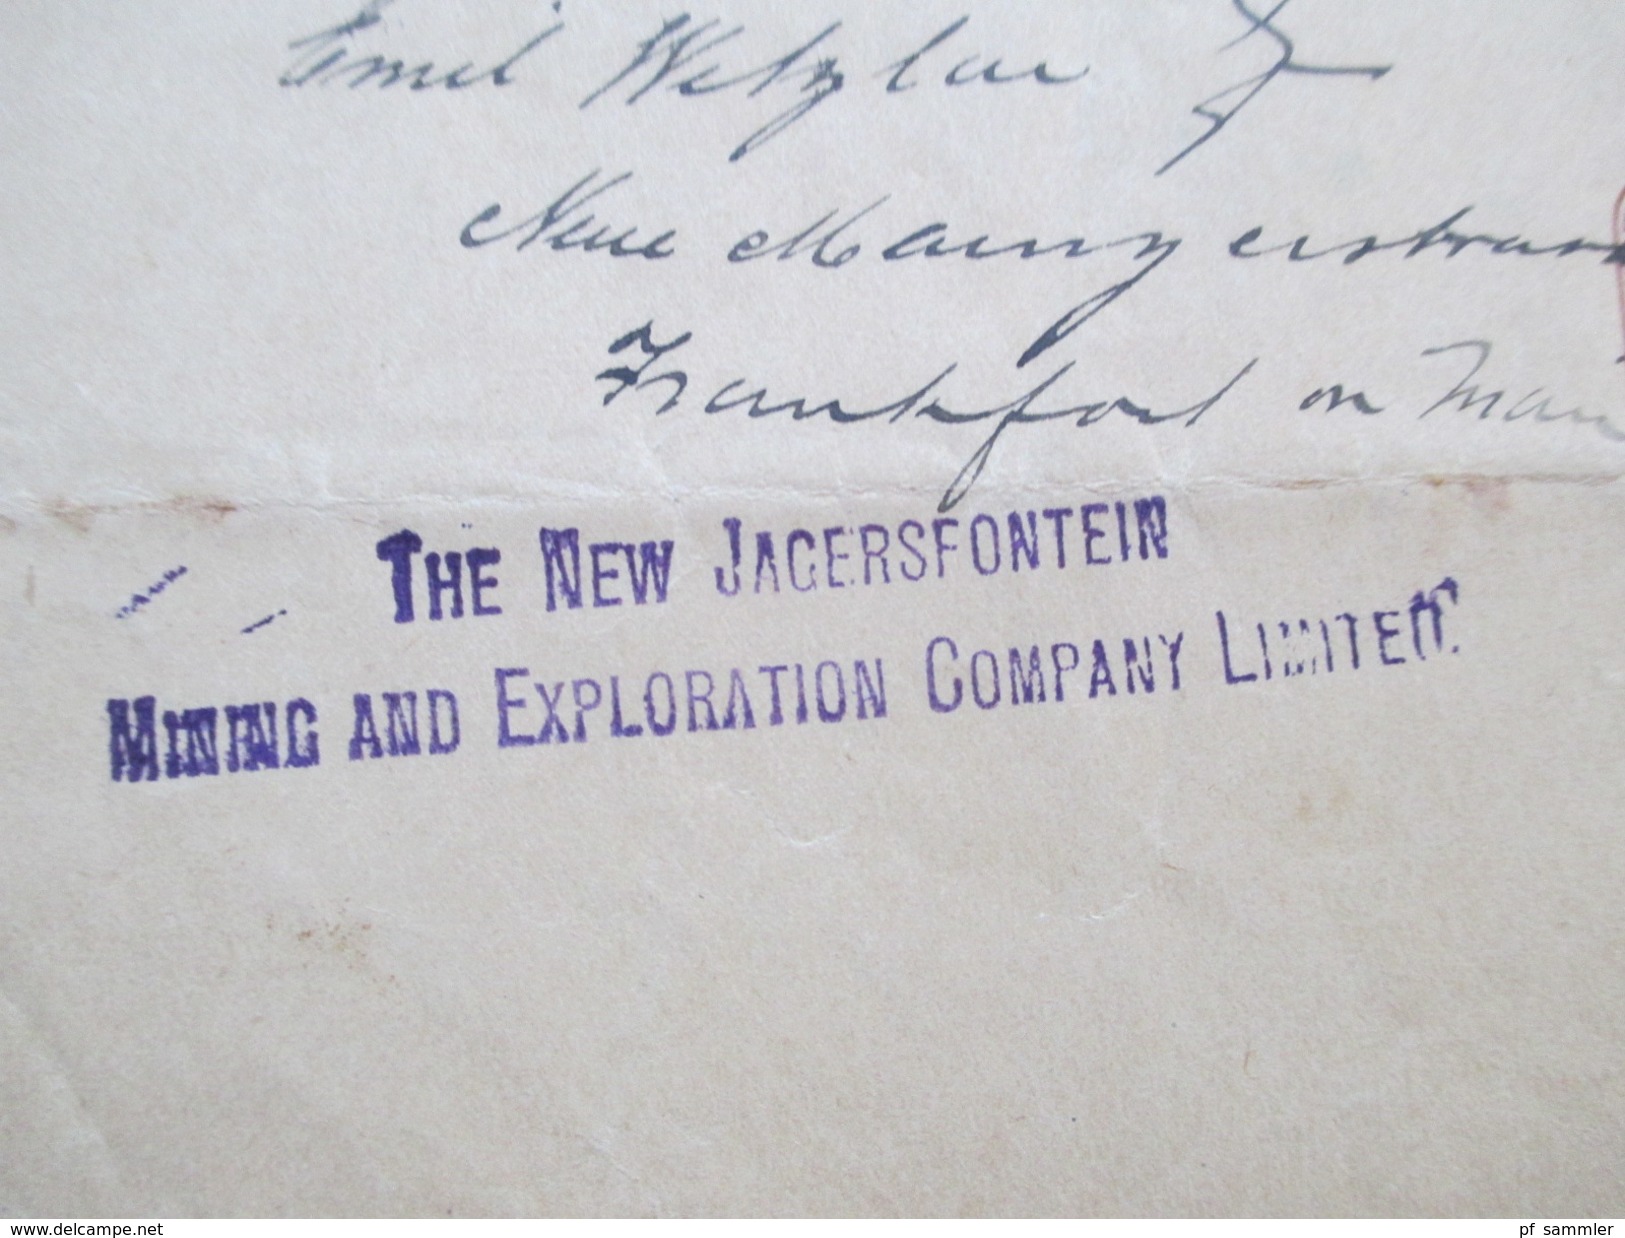 Emil Wetzlar
Neue Mainzerstrass
Frankfort on Main
THE NEW JAGERSFONTEIN
MINING AND EXPLORATION COMPANY LIMITED.
www.delcampe.net
pf_sammler